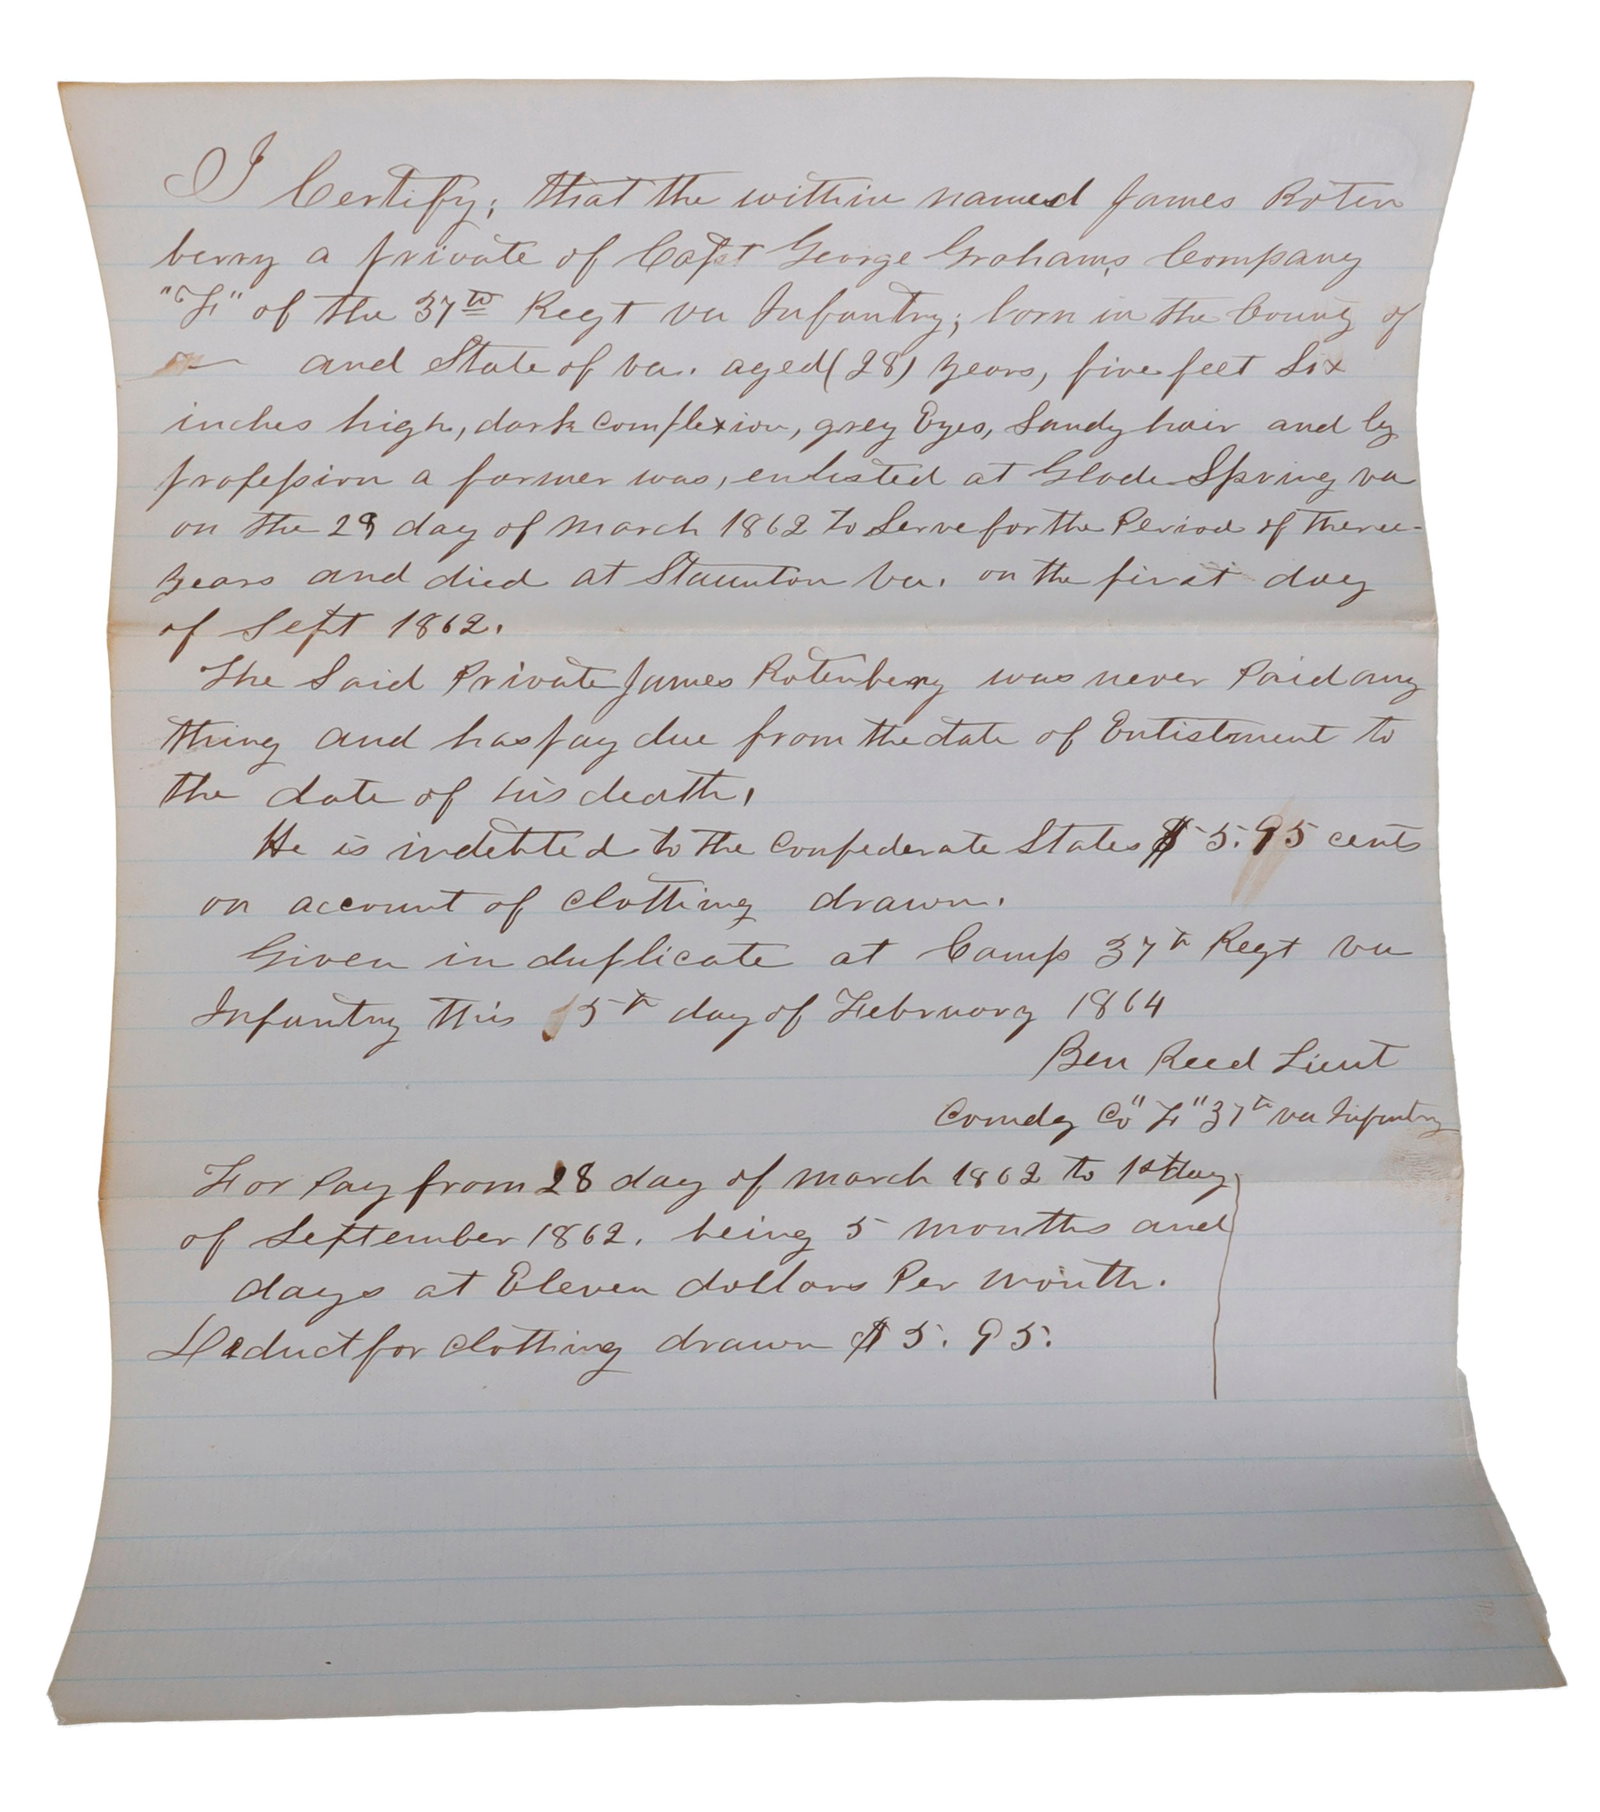 I Certify; that the within named James Roten
berry a private of Capt George Grahams Company
"F" of the 37th Regt va Infantry; born in the County of
and State of va. aged (28) years, five feet Six
inches high, dark complexion, grey Eyes, Sandy hair and by
profession a farmer was, enlisted at Glade Spring va
on the 28 day of march 1862 to Serve for the Period of Theree
years and died at Staunton va. on the first day
of Sept 1862.
The Said Private James Rotenbery was never Paid any
thing and has pay due from the date of Entistment to
the date of his death,
He is indebted to the Confederate States $5.95 cents
on account of Clotting drawn.
Given in duplicate at Camp 37th Regt va
Infantry this 5th day of February 1864
Ben Reed Lieut
Comdg Co "F" 37th va Infantry
For Pay from 28 day of march 1862 to 1st day
of September 1862. being 5 months and
days at Eleven dollars Per month.
Deduct for Clotting drawn $5.95.